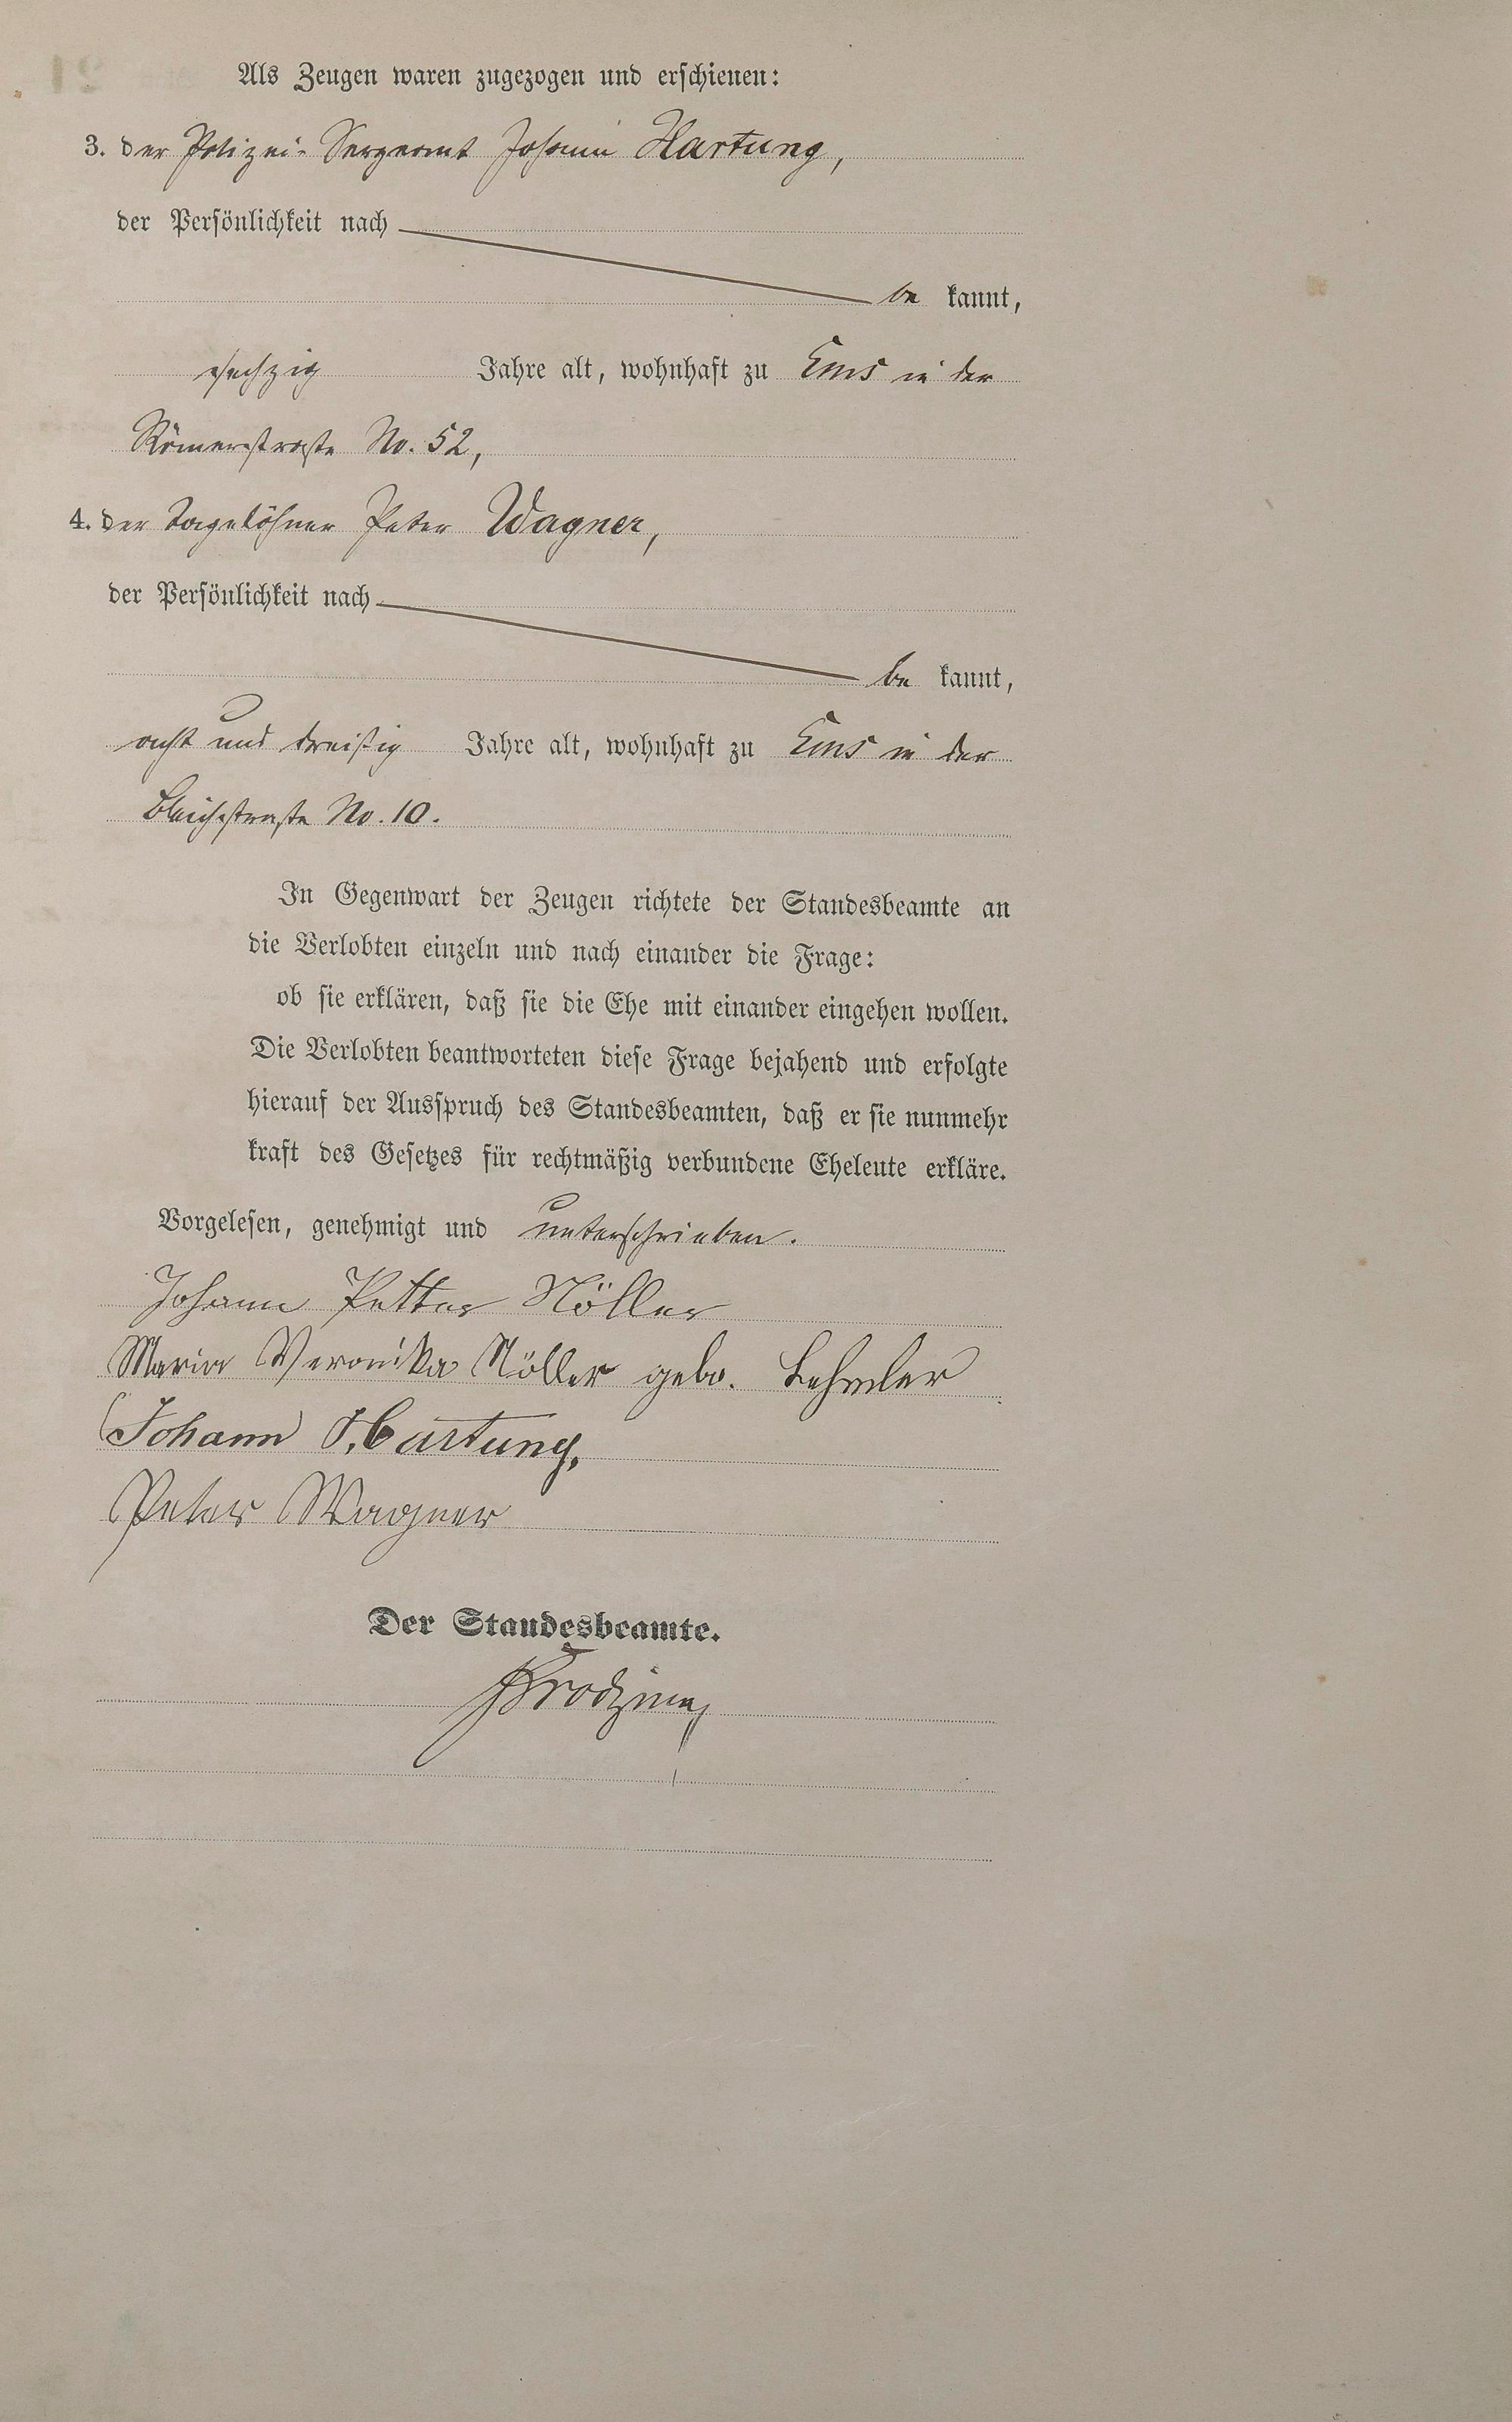 Als Zeugen waren zugezogen und erschienen:
3. der Polizei-Sergeant Johann Hartung,
der Persönlichkeit nach
be kannt,
sechzig Jahre alt, wohnhaft zu Ems in der
Römerstraße No. 52,
4. der Tagelöhner Peter Wagner,
der Persönlichkeit nach
be kannt,
acht und dreißig Jahre alt, wohnhaft zu Ems in der
Bleichstraße No. 10.
In Gegenwart der Zeugen richtete der Standesbeamte an
die Verlobten einzeln und nach einander die Frage:
ob sie erklären, daß sie die Ehe mit einander eingehen wollen.
Die Verlobten beantworteten diese Frage bejahend und erfolgte
hierauf der Ausspruch des Standesbeamten, daß er sie nunmehr
kraft des Gesetzes für rechtmäßig verbundene Eheleute erkläre.
Vorgelesen, genehmigt und unterschrieben.
Johann Petter Nöller
Maria Veronika Nöller gebo. Lehmler
Johann Hartung,
Peter Wagner
Der Standesbeamte.